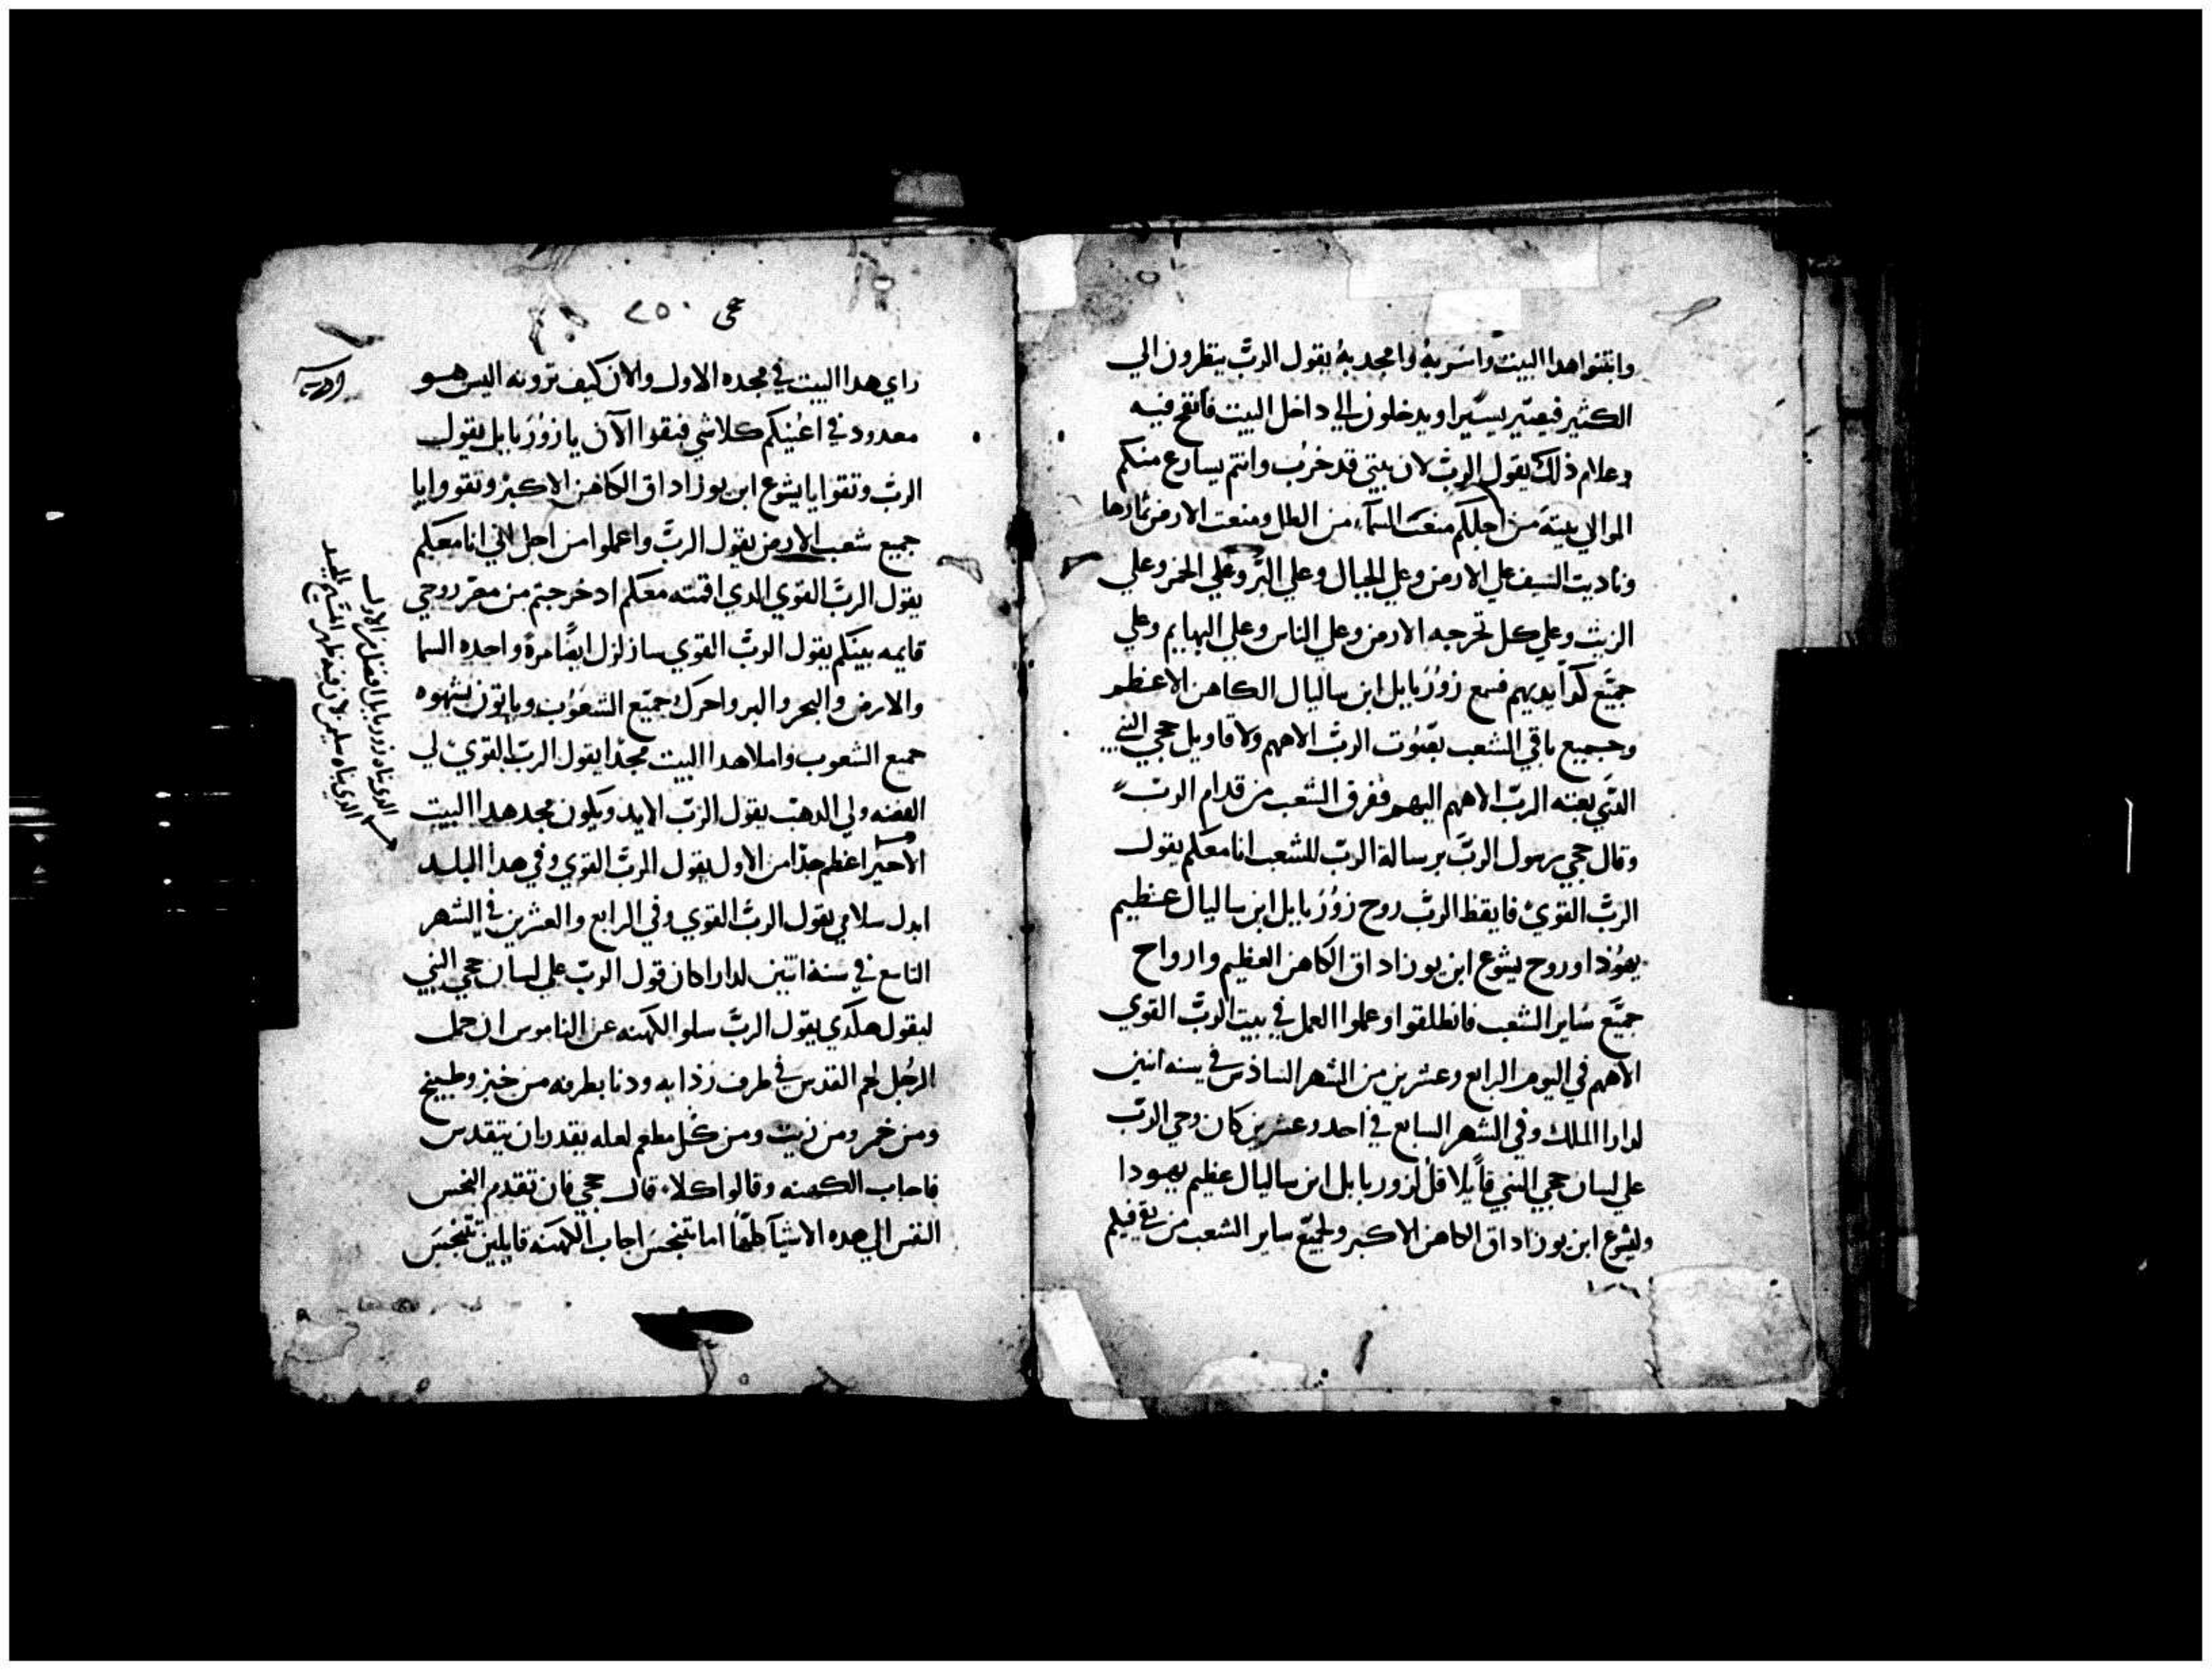 وابتنوا هدا البيت واسر به وامجد به يقول الربّ ينظرون الي
الكثير فيصير يسيرا ويدخلون الي داخل البيت فانفح فيه
وعلام ذلك يقول الربّ لان بيتي قد خرب وانتم يسارع منكم
الموالي بيته من اجلكم منعت السماء من الطل ومنعت الارض ثمارها
وناديت السيف علي الارض وعلي الجبال وعلي البر وعلي الخمر وعلي
الزيت وعلي كل تخرجه الارض وعلي الناس وعلي البهايم وعلي
جميع كد ايديهم فسمع زوربابل ابن ساليال الكاهن الاعظم
وجميع باقي الشعب بصوت الربّ الاههم ولاقاويل حجي النبي
الدي بعثه الربّ الاههم اليهم ففرق الشعب من قدام الربّ
وقال حجي رسول الربّ برسالة الربّ للشعب انا معكم يقول
الربّ القوي فايقظ الربّ روح زوربابل ابن ساليال عظيم
يهوذا وروح يشوع ابن يوزاداق الكاهن العظيم وارواح
جميع ساير الشعب فانطلقوا وعملوا العمل في بيت الربّ القوي
الاههم في اليوم الرابع وعشرين من الشهر الساذس في سنه اثنين
لدارا الملك وفي الشهر السابع في احد وعشرين كان وحي الربّ
علي لسان حجي النبي قايلا قل لزوربابل ابن ساليال عظيم يهودا
وليشوع ابن يوزاداق الكاهن الاكبر ولجميع ساير الشعب من بقي فيكم
حجي ٢٥٠
راي هدا البيت في مجده الاول والان كيف ترونه اليس هو
معدود في اعينكم كلاشي فتقوا الآن يا زوربابل يقول
الربّ وتقوا يا يشوع ابن يوزاداق الكاهن الاكبر وتقووا يا
جميع شعب الارض يقول الربّ واعملوا من اجل اني انا معكم
يقول الربّ القوي الدي اقمته معكم اد خرجتم من مصر روحي
قايمه بينكم يقول الربّ القوي سازلزل ايضا مرة واحده السما
والارض والبحر والبر واحرك جميع الشعوب وياتون بشهوه
جميع الشعوب واملا هدا البيت مجدا يقول الربّ القوي لي
الفضه ولي الدهب يقول الربّ الايد ويكون مجد هدا البيت
الاخير اعظم جدا من الاول يقول الربّ القوي وفي هدا البلد
ابدل سلامي يقول الربّ القوي وفي الرابع والعشرين في الشهر
التاسع في سنة اتنين لدارا كان قول الربّ علي لسان حجي النبي
ليقول هكدي يقول الربّ سلوا الكهنه عن الناموس ان حمل
الرجل لحم القدس في طرف رذايه ودنا بطرفه من خبز وطبيخ
ومن خمر ومن زيت ومن كل مطعم لعله يقدر ان يتقدس
فاجاب الكهنه وقالوا كلا، قال حجي فان تقدم النجس
النفس الي هده الاشيا كلها اما تنجس اجاب الكهنه قايلين تنجس
الدي بناه زوربابل افضل من الاول
الدي بناه سليمن لان فيه ظهر المسيح السيد